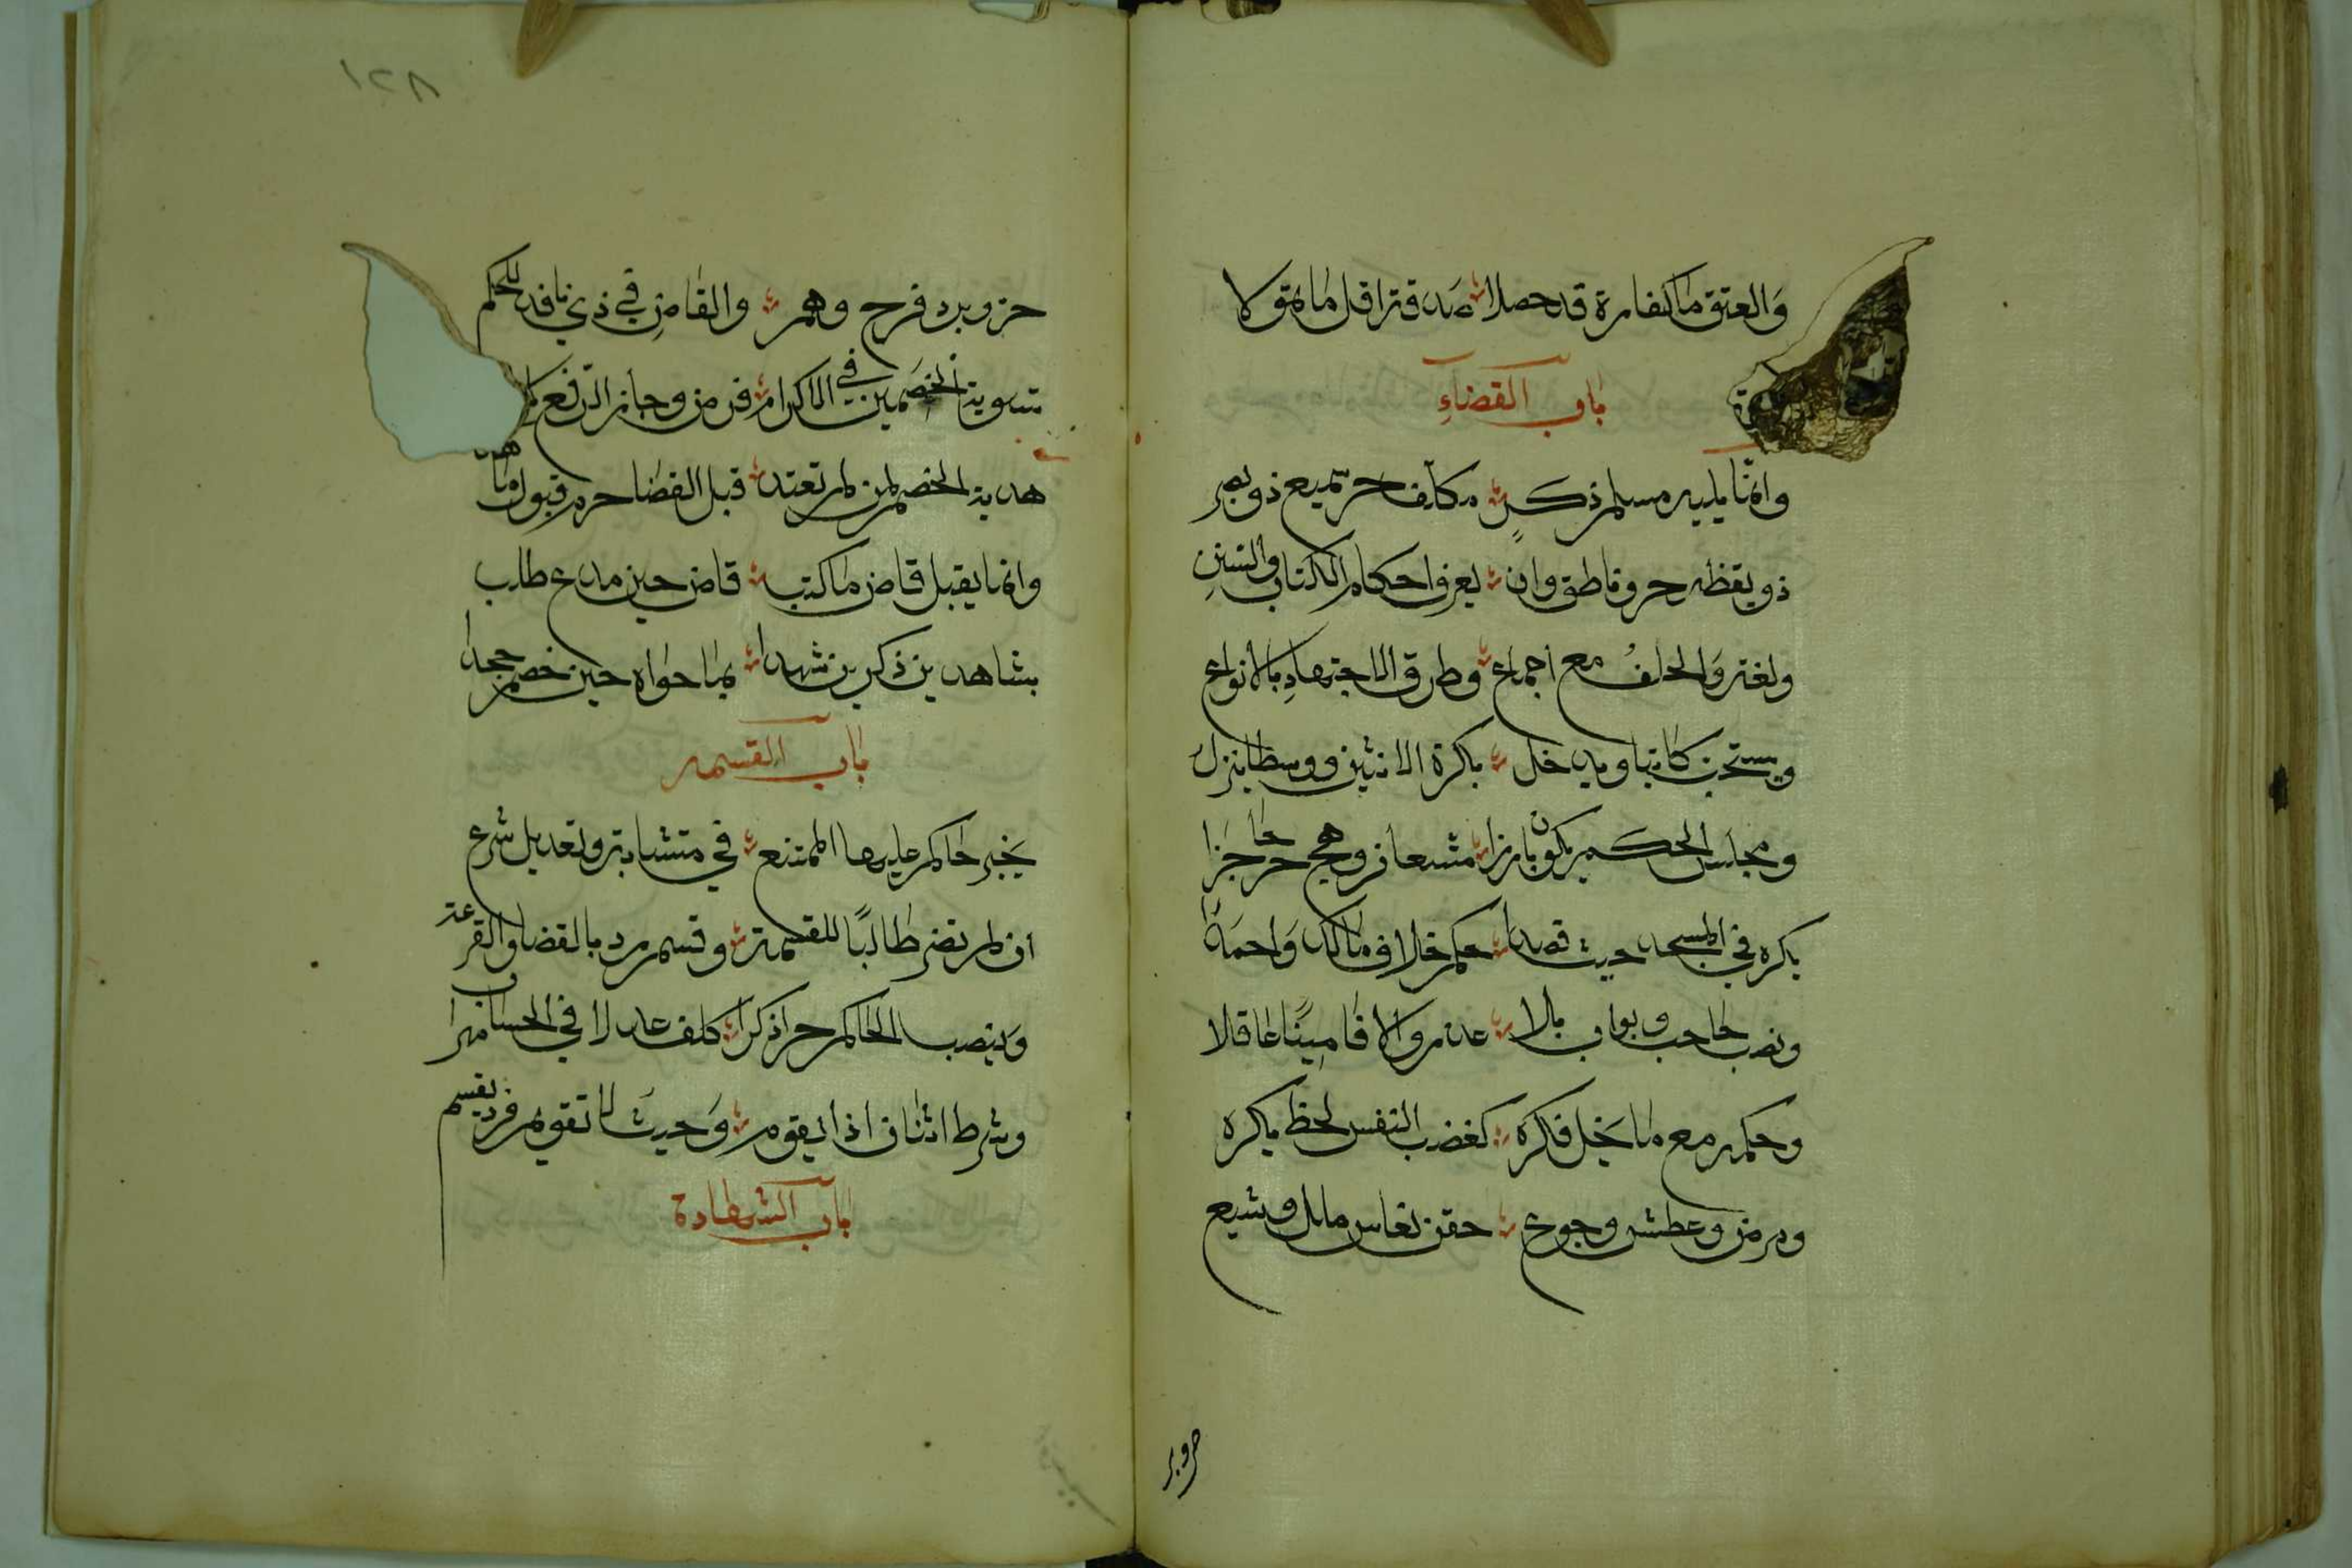 والعتق ما كفارة قد حصلا صدقة اقل ما تمولا
باب القضاء
وانما يليه مسلم ذكر مكلف حر سميع ذو بصر
ذو يقظه حر وناطق وان يعرف احكام الكتاب والسنن
ولغة والخلف مع اجماع وطرق الاجتهاد بالانواع
ويستحب كاتبا ويدخل بكرة الاثنين ووسطا ينزل
ومجلس الحكم يكون بارزا متسعا من وهج حر حاجزا
يكره في المسجد حيث قصدا حكم خلاف مالك واحمدا
ونصب حاجب وبواب بلا عذر والا فامينا عاقلا
وحكمه مع ما يخل فكره كغضب النفس لحظ يكره
ومرض وعطش وجوع حقن نعاس ملل وشبع
حر وبر
١٢٨
حر وبرد فرح وهم والقاض في ذي نافذ للحكم
تسوية الخصمين في الاكرام فرض وجاز الرفع
هدية الخصم لمن لم تعتد قبل القضا حرم قبول ما
وانما يقبل قاض ما كتب قاض حين مدع طلب
بشاهدين ذكرين شهدا بما حواه حين خصم جحدا
باب القسمه
يجبر حاكم عليها الممتنع في متشابه وتعديل شرع
ان لم تضر طالبًا للقسمة وقسم رد بالقضا والقرعة
وينصب الحاكم حرا ذكرا كلف عدلا في الحساب مهرا
وشرط اثنان اذا يقوم وحيث لا تقويم فرد يقسم
باب الشهادة